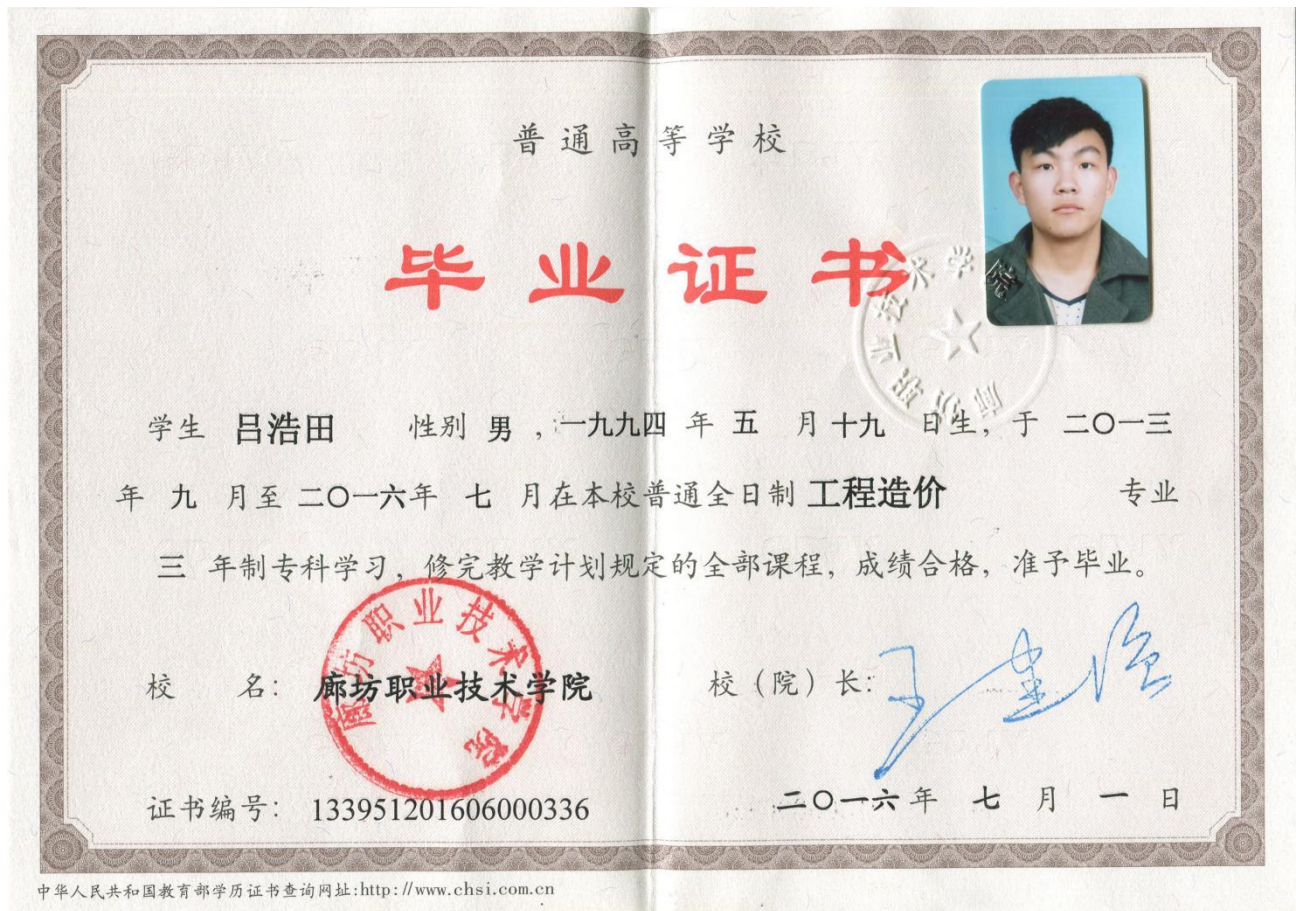 普通高等学校
毕业证书
廊坊职业技术学院
学生 吕浩田 性别 男 ,一九九四 年 五 月 十九 日生, 于 二〇一三
年 九 月至 二〇一六年 七 月在本校普通全日制 工程造价 专业
三 年制专科学习, 修完教学计划规定的全部课程, 成绩合格, 准予毕业。
廊坊职业技术学院
校 名: 廊坊职业技术学院 校(院)长:
证书编号: 133951201606000336 二〇一六 年 七 月 一 日
中华人民共和国教育部学历证书查询网址:http://www.chsi.com.cn